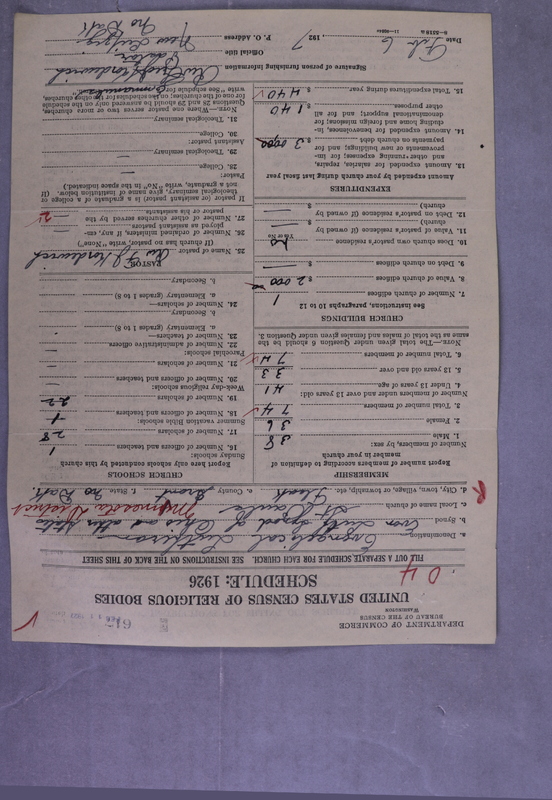 DEPARTMENT OF COMMERCE
BUREAU OF THE CENSUS
WASHINGTON
UNITED STATES CENSUS OF RELIGIOUS BODIES
SCHEDULE: 1926
04
FILL OUT A SEPARATE SCHEDULE FOR EACH CHURCH. SEE INSTRUCTIONS ON THE BACK OF THIS SHEET
a. Denomination Evangelical Lutheran
b. Synod Ev. Luth. Synod of Ohio and other States
c. Local name of church St. Pauls
d. City, town, village, or township, etc. e. County Grant f. State No Dak.
MEMBERSHIP
Report number of members according to definition of member in your church
Number of members, by sex:
1. Male 38
2. Female 36
3. Total number of members 74
Number of members under and over 13 years old:
4. Under 13 years of age 41
5. 13 years old and over 33
6. Total number of members 74
NOTE.—The total given under Question 6 should be the same as the total of males and females given under Question 3.
CHURCH BUILDINGS
See instructions, paragraphs 10 to 12
7. Number of church edifices 1
8. Value of church edifices $ 2000
9. Debt on church edifices $ —
10. Does church own pastor's residence No
Yes or No
11. Value of pastor's residence (if owned by church) $ —
12. Debt on pastor's residence (if owned by church) $ —
EXPENDITURES
Amount expended by your church during last fiscal year
13. Amount expended for salaries, repairs, and other running expenses; for improvements or new buildings; and for payments on church debt $ 300
14. Amount expended for benevolences, including home and foreign missions; for denominational support; and for all other purposes $ 140
15. Total expenditures during year $ 440
CHURCH SCHOOLS
Report here only schools conducted by this church
Sunday schools:
16. Number of officers and teachers 1
17. Number of scholars 28
Summer vacation Bible schools:
18. Number of officers and teachers 1
19. Number of scholars 22
Week-day religious schools:
20. Number of officers and teachers —
21. Number of scholars —
Parochial schools:
22. Number of administrative officers —
23. Number of teachers—
a. Elementary (grades 1 to 8)
b. Secondary
24. Number of scholars—
a. Elementary (grades 1 to 8)
b. Secondary
PASTOR
25. Name of pastor
(If church has no pastor, write "None")
26. Number of ordained ministers, if any, employed as assistants —
27. Number of other churches served by the pastor or his assistants 2
If pastor (or assistant pastor) is a graduate of a college or theological seminary, give name of institution below. (If not a graduate, write "No" in the space indicated.)
Pastor:
28. College —
29. Theological seminary —
Assistant pastor:
30. College
31. Theological seminary
NOTE.—Where one pastor serves two or more churches, Questions 28 and 29 should be answered only on the schedule for one of the churches; on schedules for the other churches, write "See schedule for
Signature of person furnishing information
Official title Pastor
P. O. Address New Leipzig No Dak
Date Feb 6, 1927